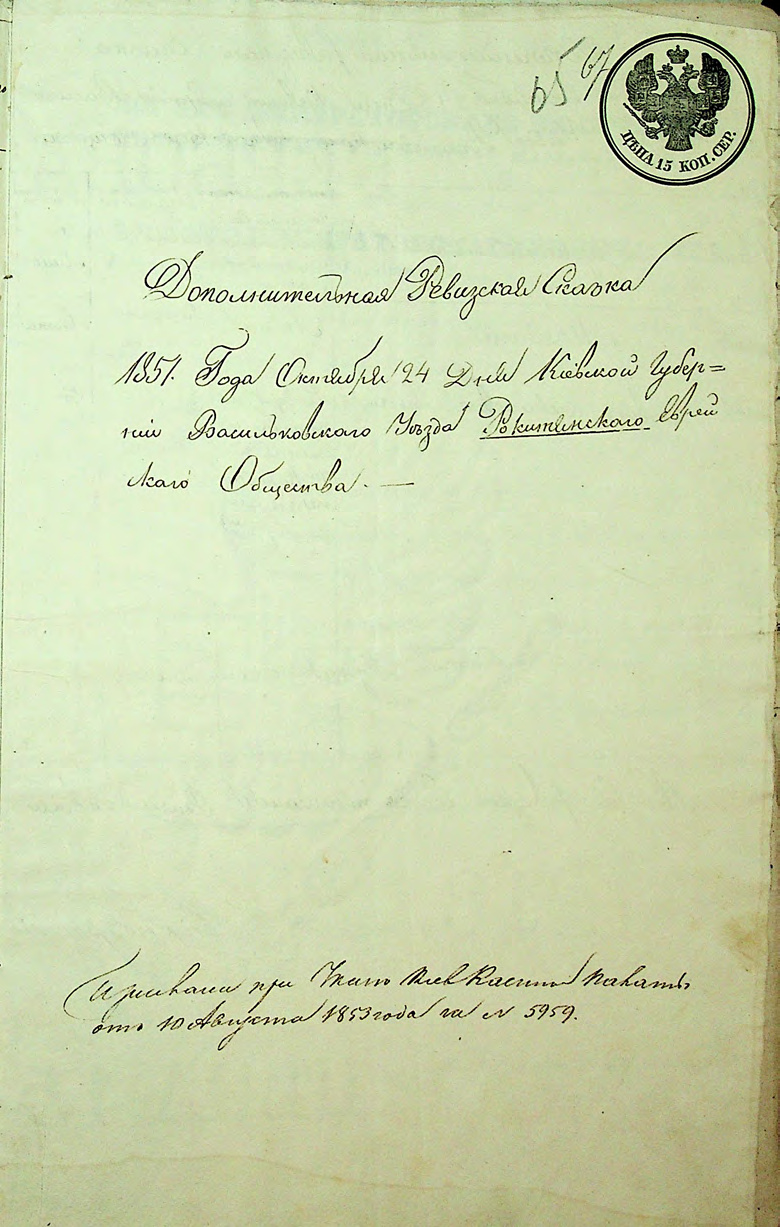 65 67
ЦѢНА 15 КОП. СЕР.
Дополнительная Ревизская Сказка
1851. Года Октября 24 Дня Кіевской Губер=
ніи Васильковскаго Уѣзда Рокитянскаго Еврей
скаго Общества. —
при Указѣ Кіев Казенной Палаты
отъ 10 Августа 1853 года за № 5959.